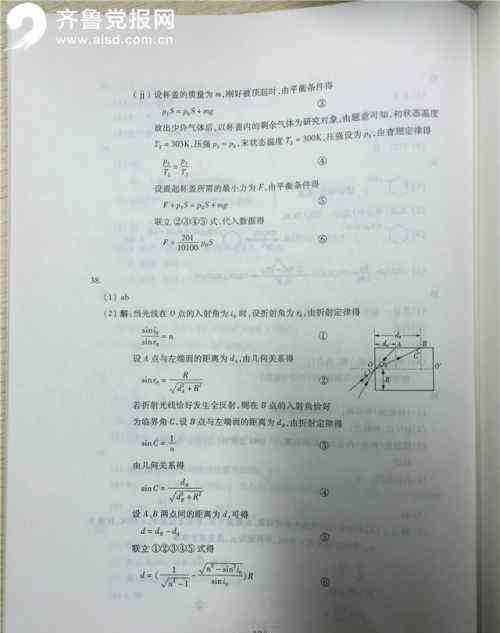 齐鲁党报网
www.alsd.com.cn
(ⅱ)设杯盖的质量为 m,刚好被顶起时,由平衡条件得
p₁S = p₀S + mg ③
放出少许气体后,以杯盖内的剩余气体为研究对象,由题意可知,初状态温度
T₂ = 303K,压强 p₂ = p₀,末状态温度 T₃ = 300K,压强设为 p₃,由查理定律得
p₂/T₂ = p₃/T₃ ④
设提起杯盖所需的最小力为 F,由平衡条件得
F + p₃S = p₀S + mg ⑤
联立 ②③④⑤ 式,代入数据得
F = 201/10100 p₀S ⑥
38.
(1) ab
(2) 解:当光线在 O 点的入射角为 i₀ 时,设折射角为 r₀,由折射定律得
sin i₀/sin r₀ = n ①
设 A 点与左端面的距离为 d_A,由几何关系得
sin r₀ = R/√(d_A² + R²) ②
若折射光线恰好发生全反射,则在 B 点的入射角恰好
为临界角 C,设 B 点与左端面的距离为 d_B,由折射定律得
sin C = 1/n ③
由几何关系得
sin C = d_B/√(d_B² + R²) ④
设 A、B 两点间的距离为 d,可得
d = d_B - d_A ⑤
联立 ①②③④⑤ 式得
d = (1/√(n² - 1) - √(n² - sin² i₀)/sin i₀)R ⑥
d_B
d_A
A
B
C
O
O'
R